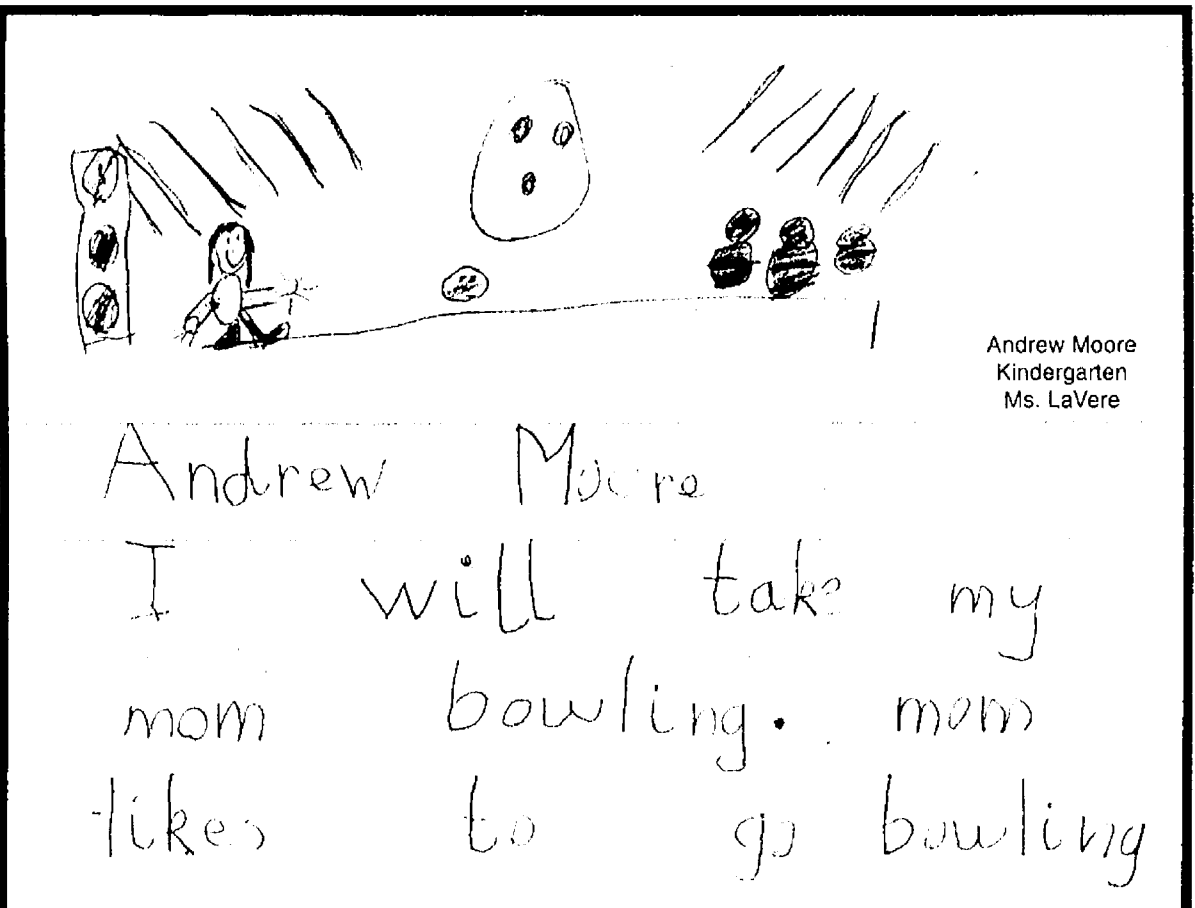 Andrew Moore
Kindergarten
Ms. LaVere
Andrew Moore
I will take my
mom bowling. mom
likes to go bowling